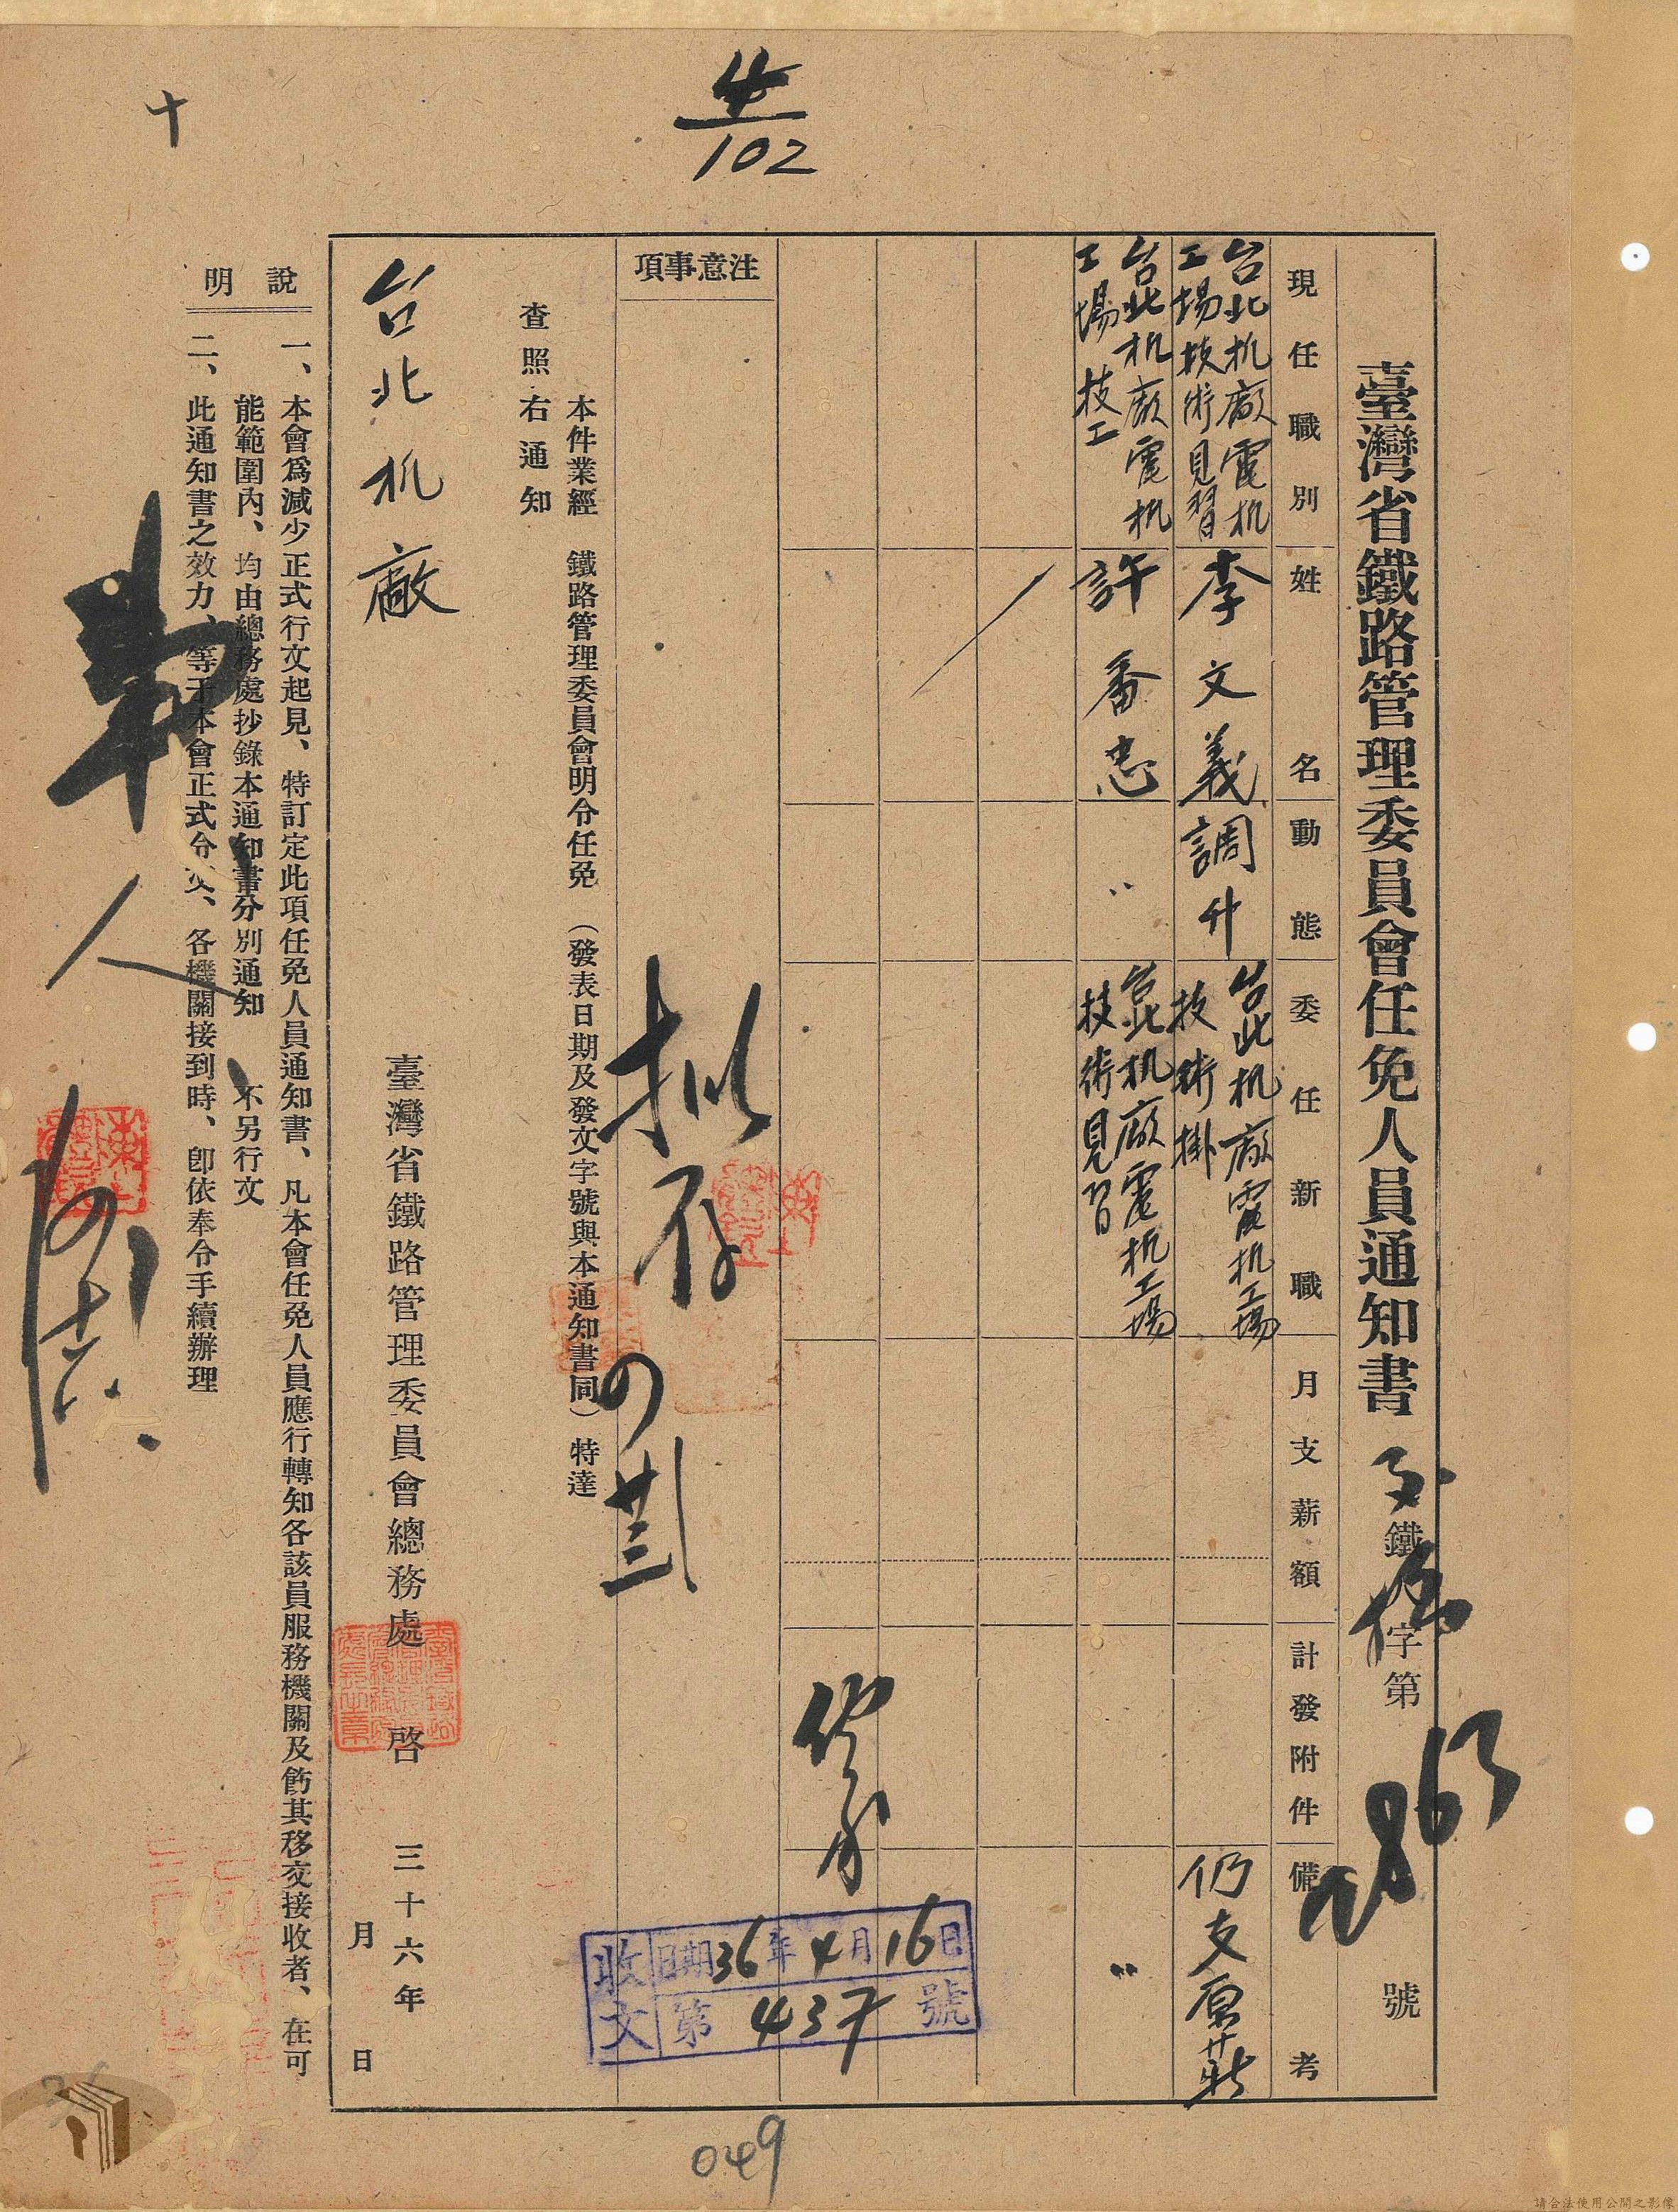 4
102
十
臺灣省鐵路管理委員會任免人員通知書
鐵
字第
863
號
現任職別
姓名
動態
委任新職
月支薪額
計發附件
備考
台北机廠電机
工場技術見習
李文義
調升
台北机廠電机工場
技術掛
仍支原薪
台北机廠電机
工場技工
許番忠
〃
台北机廠電机工場
技術見習
〃
注意事項
拟存
收文
日期36年4月16日
第437號
本件業經 鐵路管理委員會明令任免(發表日期及發文字號與本通知書同)特達
查照右通知
台北机廠
臺灣省鐵路管理委員會總務處 啓
三十六年
月 日
說明
一、本會爲減少正式行文起見、特訂定此項任免人員通知書、凡本會任免人員應行轉知各該員服務機關及飭其移交接收者、在可
能範圍內、均由總務處抄錄本通知書分別通知、不另行文
二、此通知書之效力、等于本會正式令文、各機關接到時、卽依奉令手續辦理
人
049
請合法使用公開之影像